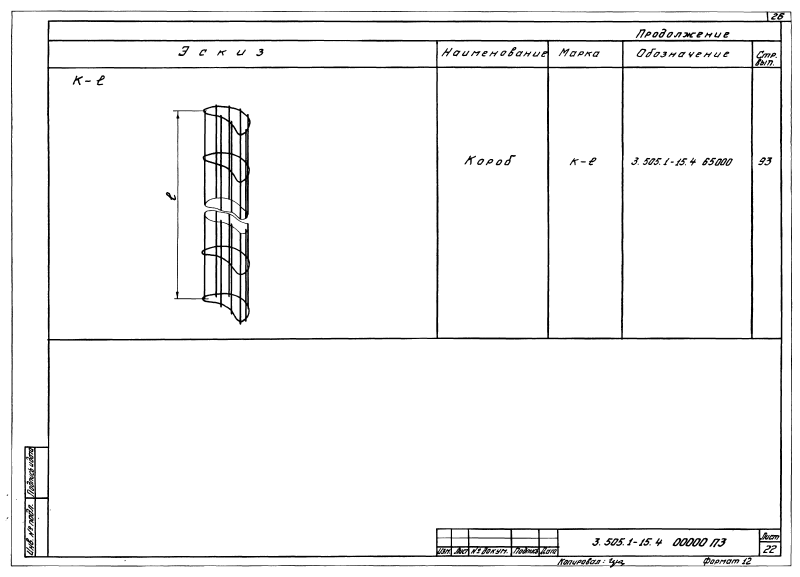 26
Продолжение
Эскиз Наименование Марка Обозначение Стр. вып.
К-ℓ
Короб К-ℓ 3.505.1-15.4 65000 93
ℓ
Инв. № подл. Подпись и дата
Изм. Лист № докум. Подпись Дата
3.505.1-15.4 00000 ПЗ
Лист
22
Копировал:
Формат 12